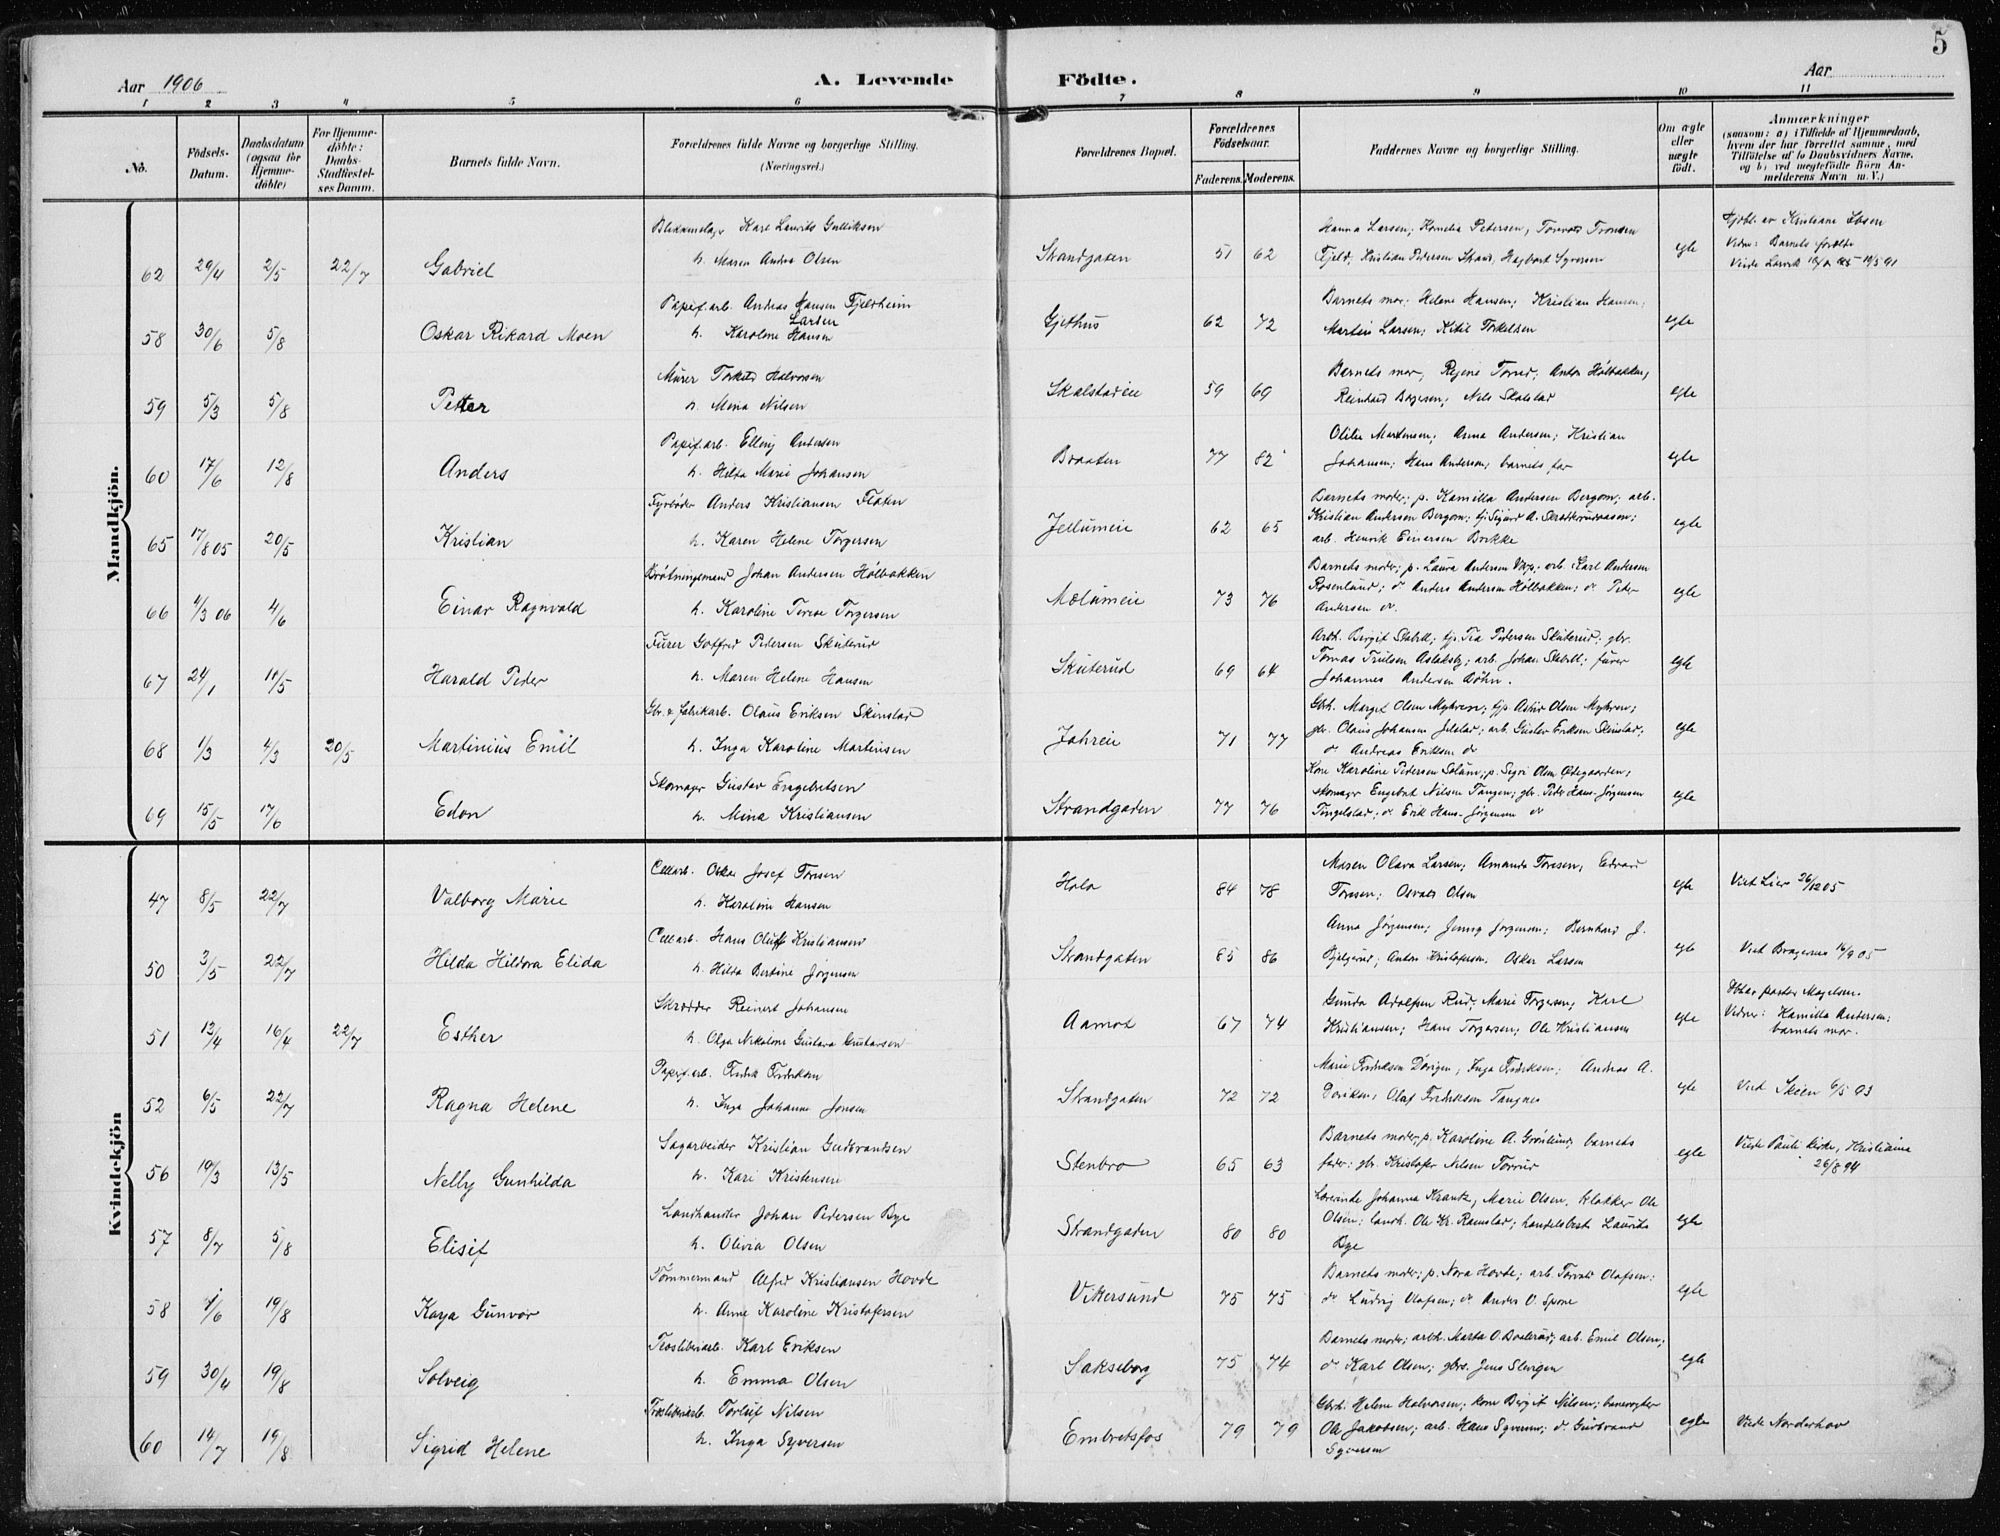 5
Aar 1906
A. Levende Födte.
Aar
1 2 3 4 5 6 7 8 9 10 11
No.
Födsels-Datum.
Daabsdatum (ogsaa for Hjemmedöbte)
For Hjemmedöbte: Daabs-Stadfæstelses Datum.
Barnets fulde Navn.
Forældrenes fulde Navne og borgerlige Stilling. (Næringsvei.)
Forældrenes Bopæl.
Forældrenes Födselsaar.
Faderens. Moderens.
Faddernes Navne og borgerlige Stilling.
Om ægte eller uægte födt.
Anmærkninger
(saasom: a) i Tilfælde af Hjemmedaab, hvem der har forrettet samme, med Tilföielse af to Daabsvidners Navne, og b) ved uægtefödte Börn Anmelderens Navn m. V.)
Mandkjön.
62 29/4 2/5 22/7 Gabriel
Karl Laurits Gulliksen
h. Maren Andrea Olsen
Strandgaten 51 62
Hanna Larsen; Kornelia Petersen,
Fjeld, Kristian Pedersen Hagbart Syversen
egte
Kristiane Ibsen
Vidn: Barnets foreldre
Viede Larvik
58 30/6 5/8 Oskar Rikard Moen
Papirfarb. Andreas Hansen Fjeldheim
Larsen
h. Karoline Hansen
Gjethus 62 72
Barnets mor; Helene Hansen; Kristian Hansen;
Martin Larsen; Torkelsen
egte
59 5/3 5/8 Petter
Murer Torkild Halvorsen
h. Mina Nilsen
Skalstadeie 59 69
Barnets mor, Regine Anton Hølbakken,
Reinhard Nils Skalstad
egte
60 17/6 12/8 Anders
Papirfarb. Elling Andersen
h. Helda Marie Johansen
Braaten 77 82
Otilie Martinsen; Anna Andersen; Kristian
Johansen; Hans Andersen; barnets far
egte
65 17/8 05 20/5 Kristian
Fyrbøder Anders Kristiansen Flaten
h. Karen Helene Torgersen
Jellumeie 62 65
Barnets moder; p. Kamilla Andersen Bergom; arb.
Kristian Andersen Bergom; tj. Sigurd A.
arb. Henrik Brekke
egte
66 4/3 06 4/6 Einar Ragnvald
Brøtningsmand Johan Andersen Hølbakken
h. Karoline Torgersen
Mælumeie 73 76
Barnets moder; p. Laura Andersen arb. Karl Andersen
Rosenlund; do Anders Andersen Hølbakken; do Peder
Andersen do.
egte
67 24/1 Harald Peder
Furer Gotfred Pedersen Skuterud
h. Maren Helene Hansen
Skuterud 69 64
Birgit tj. Tea Pedersen Skuterud; gbr.
Tomas Trulsen arb. Johan furer
Johannes Andersen Bøhn.
egte
68 1/3 4/3 20/5 Martinius Emil
Gbr. & fabrikarb. Olaus Eriksen Skinstad
h. Inga Karoline Martinsen
Jahreie 71 77
Margit Olsen Myhren; tj. Olsen Myhren;
gbr. Olaus Johansen arb. Gustav Eriksen Skinstad;
do Andreas Eriksen do
egte
69 15/5 17/6 Edon
Skomager Gustav Engebretsen
h. Mina Kristiansen
Strandgaden 77 76
Kone Karoline Pedersen Solum; p. Sigri Olsen
skomager Engebret Nilsen Tangen; gbr. Peder Hans-Jørgensen
Tingelstad; do Erik Hans-Jørgensen do
egte
Kvindekjön
47 8/5 22/7 Valborg Marie
Cellarb. Oskar Josef Toresen
h. Karoline Hansen
Holo 84 78
Maren Olava Larsen; Amanda Toresen, Edvard
Toresen; Osvald Olsen
egte
Viet Lier 26/12 05
50 3/5 22/7 Hilda Hildora Elida
Cellarb. Hans Oluf Kristiansen
h. Hilda Bertine Jørgensen
Strandgaten 85 86
Anna Jørgensen; Jenny Jørgensen; Bernhard J.
Anton Kristofersen, Oskar Larsen
egte
Viet Bragernes 16/9 05
51 13/4 16/4 22/7 Esther
Skrædder Reinert Johansen
h. Olga Nikoline Gustava Gustavsen
Aamot 67 74
Gunda Adolfsen Rud, Marie Torgersen; Karl
Kristiansen; Hans Torgersen; Ole Kristiansen
egte
Døbt av pastor Magelsen.
Vidner: Kamilla Andersen;
barnets mor.
52 6/5 22/7 Ragna Helene
Papirfarb. Fredrik Fredriksen
h. Inga Johanne Jonsen
Strandgaten 72 72
Marie Fredriksen Inga Fredriksen; Andreas A.
Olaf Fredriksen Tangnes
egte
Viet Skien 6/5 93
56 19/3 13/5 Nelly Gunhilda
Sagarbeider Kristian Gudbrandsen
h. Kari Kristensen
Stenbro 65 63
Barnets moder, p. Karoline A. Grønlund; barnets
fader; gbr. Kristofer Nilsen
egte
Viede Pauli kirke, Kristiania
26/8 94
57 8/7 5/8 Elisif
Landhandler Johan Pedersen Bye
h. Olivia Olsen
Strandgaden 80 80
Lærerinde Johanna Krantz, Marie Olsen, klokker Ole
Olsen; landh. Ole Kr. Ramstad; handelsbest. Laurits
Bye
egte
58 1/6 19/8 Kaya Gunvor
Tømmermand Alfred Kristiansen Hovde
h. Anne Karoline Kristofersen
Vikersund 75 75
Barnets moder; p. Nora Hovde; arb. Torvald Olafsen;
do Ludvig Olafsen; do Anders O. Spone
egte
59 30/4 19/8 Solveig
Træsliberiarb. Karl Eriksen
h. Emma Olsen
Sakseborg 75 74
Barnets moder; Marta O. arb. Emil Olsen;
do Karl Olsen; gbrs. Jens Slevigen
egte
60 14/7 19/8 Sigrid Helene
Træsliberiarb. Torluf Nilsen
h. Inga Syversen
Embretsfos 79 79
Helene Halvorsen; kone Birgit Nilsen; banevogter
Ole Jakobsen; arb. Hans Syversen; do Gudbrand
Syversen
egte
Viede Norderhov